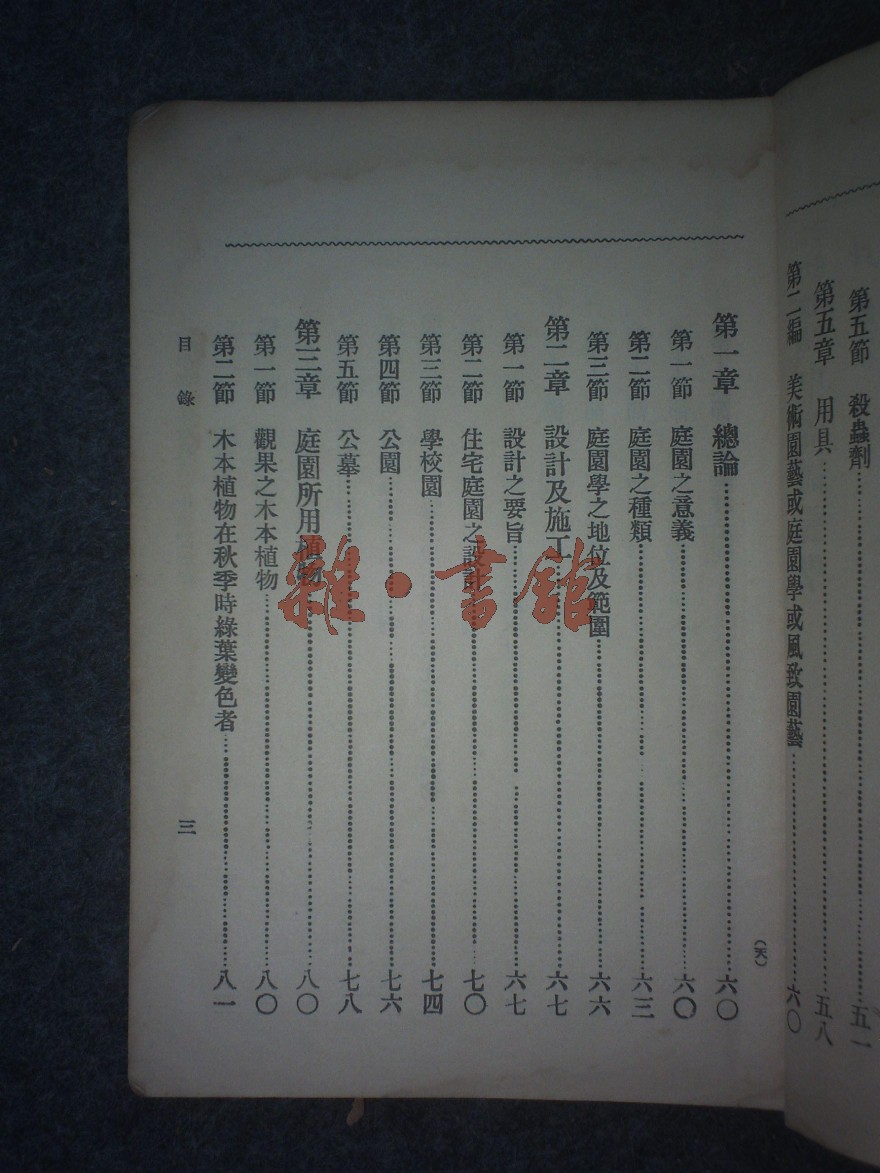 第五節 殺蟲劑 五一
第五章 用具 五八
第二編 美術園藝或庭園學或風致園藝 六〇
(天)
第一章 總論 六〇
第一節 庭園之意義 六〇
第二節 庭園之種類 六三
第三節 庭園學之地位及範圍 六六
第二章 設計及施工 六七
第一節 設計之要旨 六七
第二節 住宅庭園之設計 七〇
第三節 學校園 七四
第四節 公園 七六
第五節 公墓 七八
第三章 庭園所用植物 八〇
第一節 觀果之木本植物 八〇
第二節 木本植物在秋季時綠葉變色者 八一
目錄 三
雜·書館